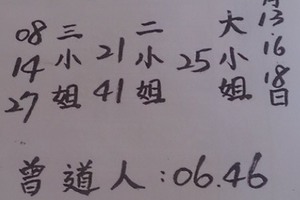 13.16.18日
大小姐
25
二小姐
21 41
三小姐
08 14 27
曾道人:06.46